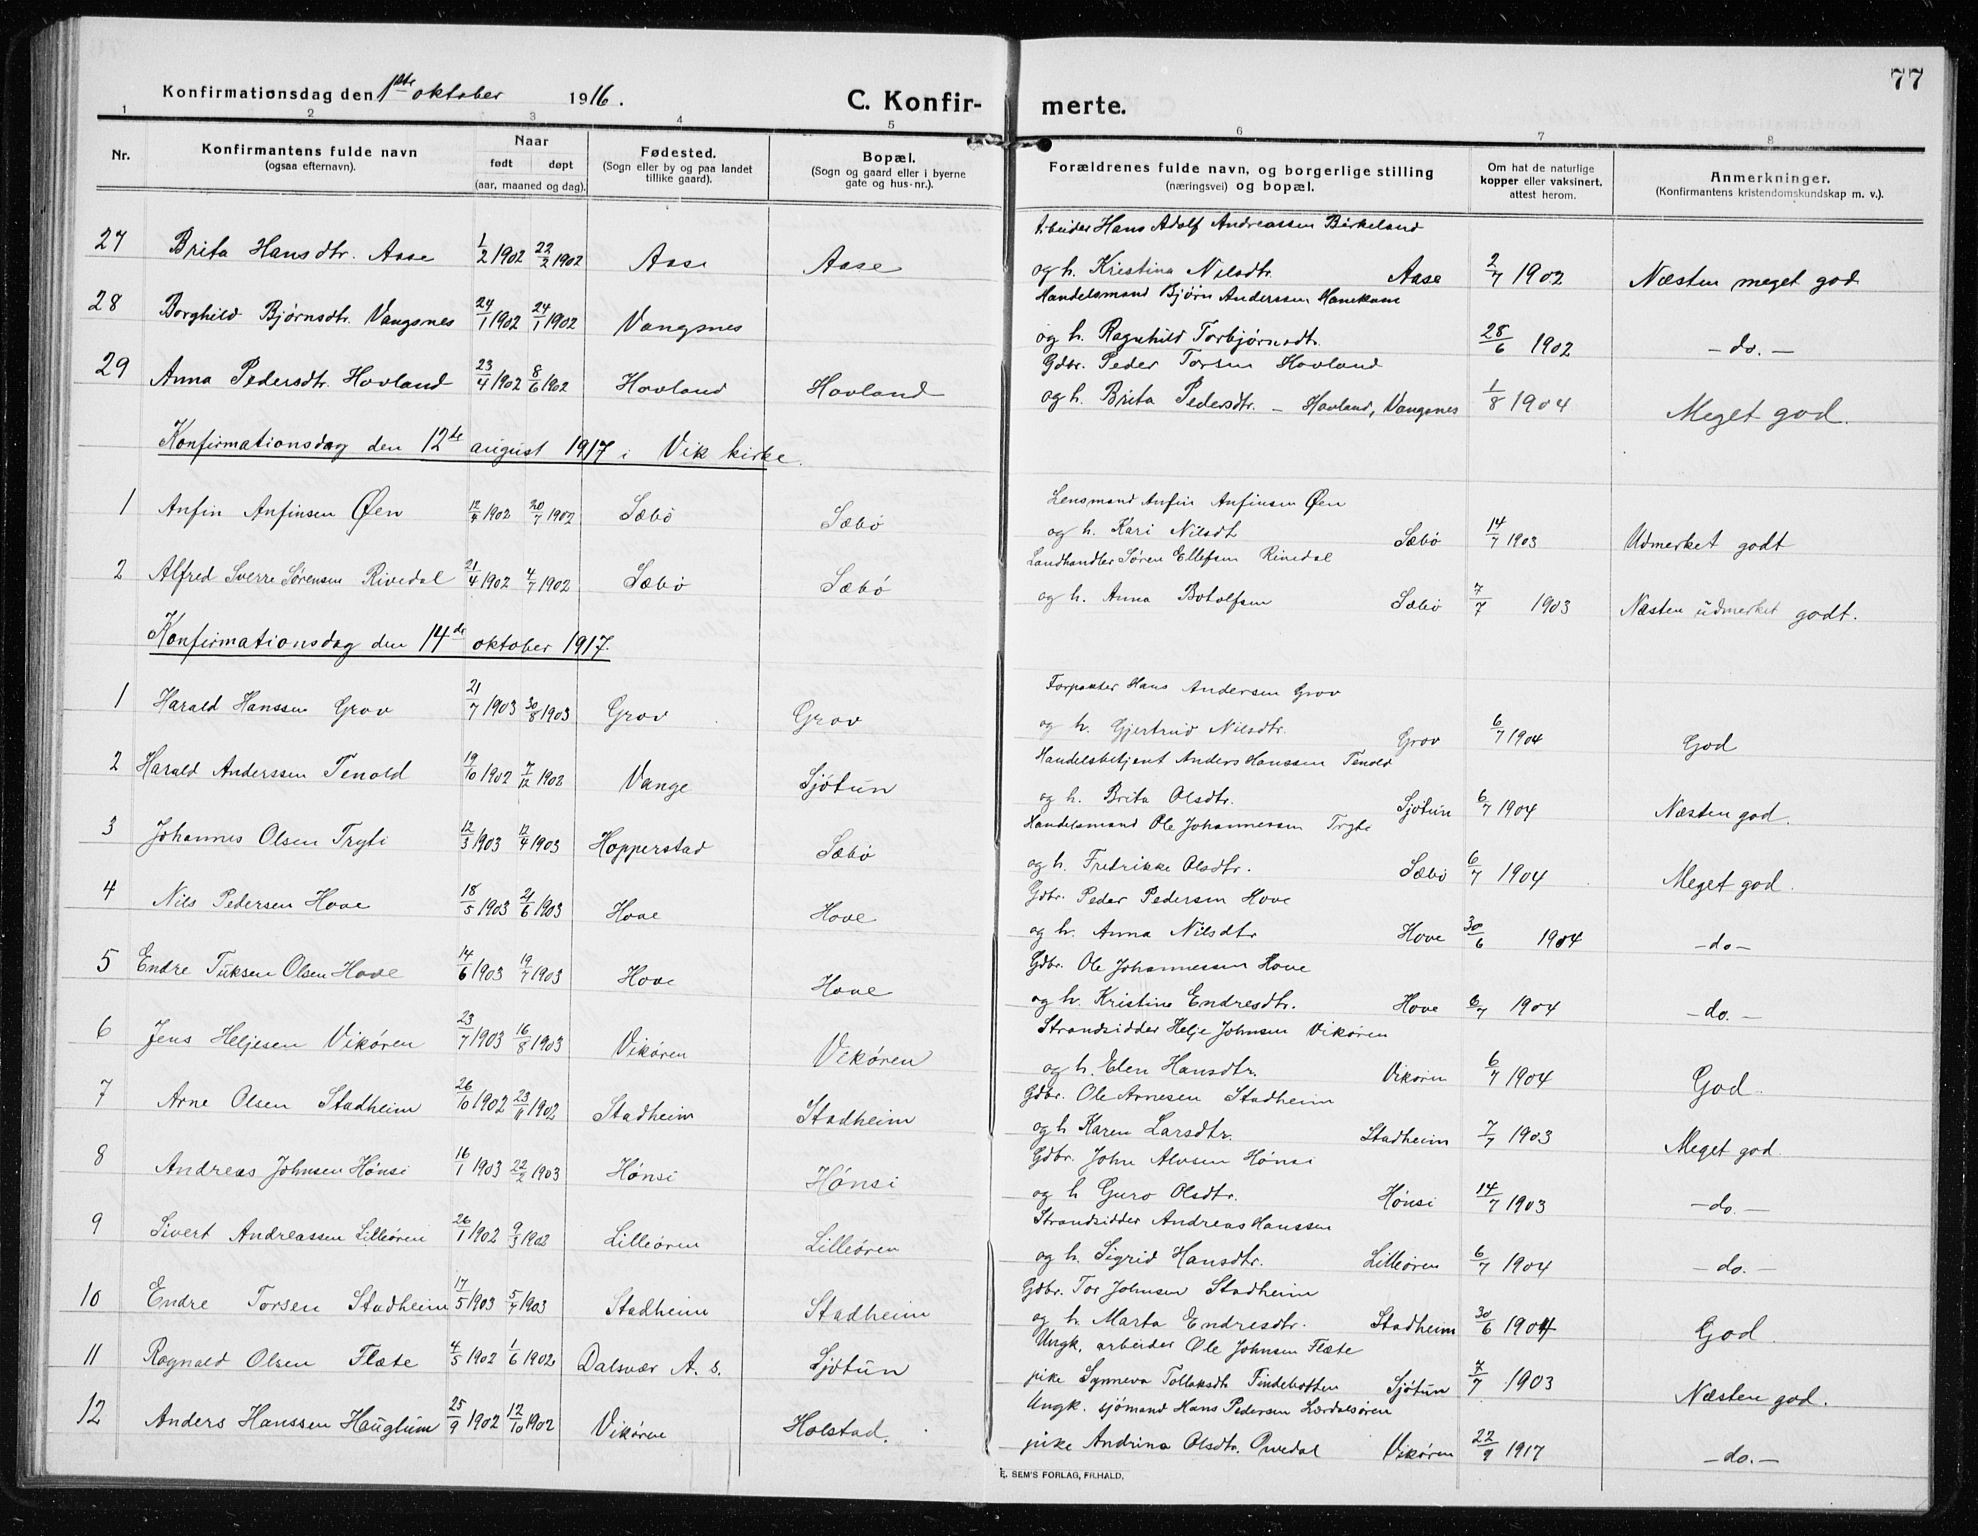 77
Konfirmationsdag den 1ste oktober 1916.
C. Konfir- merte.
1 2 3 4 5 6 7 8
Nr. Konfirmantens fulde navn (ogsaa efternavn). Naar født døpt (aar, maaned og dag). Fødested. (Sogn eller by og paa landet tillike gaard). Bopæl. (Sogn og gaard eller i byerne gate og hus-nr.). Forældrenes fulde navn, og borgerlige stilling (næringsvei) og bopæl. Om hat de naturlige kopper eller vaksinert, attest herom. Anmerkninger. (Konfirmantens kristendomskundskap m. v.).
Arbeider Hans Adolf Andreassen Birkeland
27 Brita Hansdtr. Aase 1/2 1902 22/2 1902 Aase Aase og h. Kristina Nilsdtr. Aase 2/7 1902 Næsten meget god
Handelsmand Bjørn Anderssen Hanekam
28 Borghild Bjørnsdtr. Vangsnes 24/1 1902 24/1 1902 Vangsnes og h. Ragnhild Torbjørnsdtr. 28/6 1902 - do. -
Gdbr. Peder Torsen Hovland
29 Anna Pedersdtr. Hovland 23/4 1902 8/6 1902 Hovland Hovland og h. Brita Pedersdtr. - Hovland, Vangsnes 1/8 1904 Meget god.
Konfirmationsdag den 12te august 1917 i Vik kirke.
Lensmand Anfin Anfinsen Øen
1 Anfin Anfinsen Øen 1902 20/7 1902 Sæbø Sæbø og h. Kari Nilsdt. Sæbø 14/7 1903 Udmerket godt
Landhandler Søren Ellefsen Rivedal
2 Alfred Sverre Sørensen Rivedal 21/4 1902 4/7 1902 Sæbø Sæbø og h. Anna Botolfsen Sæbø 7/7 1903 Næsten udmerket godt.
Konfirmationsdag den 14de oktober 1917.
Forpakter Hans Andersen Grov
1 Harald Hanssen Grov 21/7 1903 30/8 1903 Grov Grov og h. Gjertrud Nilsdtr. Grov 6/7 1904 God
Handelsbetjent Anders Hanssen Tenold
2 Harald Anderssen Tenold 19/10 1902 7/12 1902 Vange Sjøtun og h. Brita Olsdtr. Sjøtun 6/7 1904 Næsten god.
Handelsmand Ole Johannessen Tryti
3 Johannes Olsen Tryti 12/3 1903 12/4 1903 Hopperstad Sæbø og h. Fredrikke Olsdtr. Sæbø 6/7 1904 Meget god.
Gdbr. Peder Pedersen Hove
4 Nils Pedersen Hove 18/5 1903 21/6 1903 Hove Hove og h. Anna Nilsdtr Hove 30/6 1904 - do -
Gdbr. Ole Johannessen Hove
5 Endre Tuksen Olsen Hove 14/6 1903 19/7 1903 Hove Hove og h. Kristine Endresdtr. Hove 6/7 1904 - do. -
Strandsidder Helje Johnsen Vikøren
6 Jens Heljesen Vikøren 23/7 1903 16/8 1903 Vikøren Vikøren og h. Elen Hansdtr. Vikøren 6/7 1904 God
Gdbr. Ole Arnesen Stadheim
7 Arne Olsen Stadheim 26/10 1902 23/11 1902 Stadheim Stadheim og h Karen Larsdtr. Stadheim 7/7 1903 Meget god.
Gdbr. John Alvsen Hønsi
8 Andreas Johnsen Hønsi 16/1 1903 22/2 1903 Hønsi Hønsi og h Guro Olsdtr. Hønsi 14/7 1903 - do. -
Strandsidder Andreas Hanssen
9 Sivert Andreassen Lilleøren 26/1 1902 9/3 1902 Lilleøren Lilleøren og h. Sigrid Hansdtr. Lilleøren 6/7 1904 - do. -
Gdbr. Tor Johnsen Stadheim
10 Endre Torsen Stadheim 17/5 1903 5/7 1903 Stadheim Stadheim og h. Marta Endresdtr. Stadheim 30/6 1904 God
Ungk. arbeider Ole Johnsen Flæte
11 Ragnald Olsen Flæte 4/5 1902 1/6 1902 Dalsvær A. s. Sjøtun pike Synneva Tollaksdt. Findebotten Sjøtun 7/7 1903 Næsten god.
Ungk. sjømand Hans Pedersen Lærdalsøren
12 Anders Hanssen Hauglum 25/9 1902 12/10 1902 Vikøren Holstad. pike Andrina Olsdtr. Ovedal Vikøren 22/9 1917 - do. -
E. SEM'S FORLAG, FR.HALD.